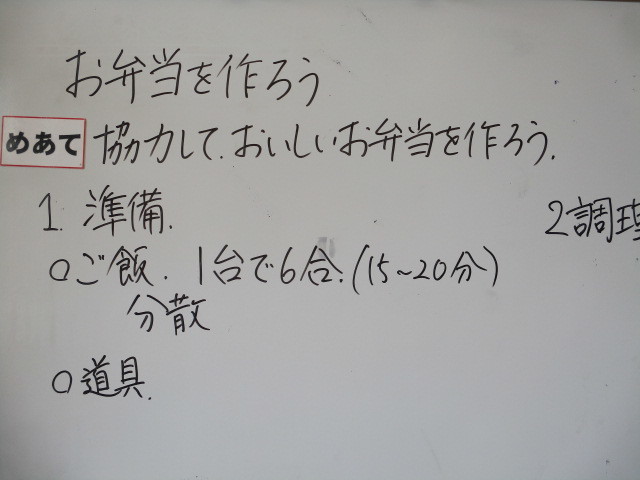 お弁当を作ろう
めあて 協力して.おいしいお弁当を作ろう.
1. 準備.
2調理
○ご飯. 1台で6合.(15~20分)
分散
○道具.